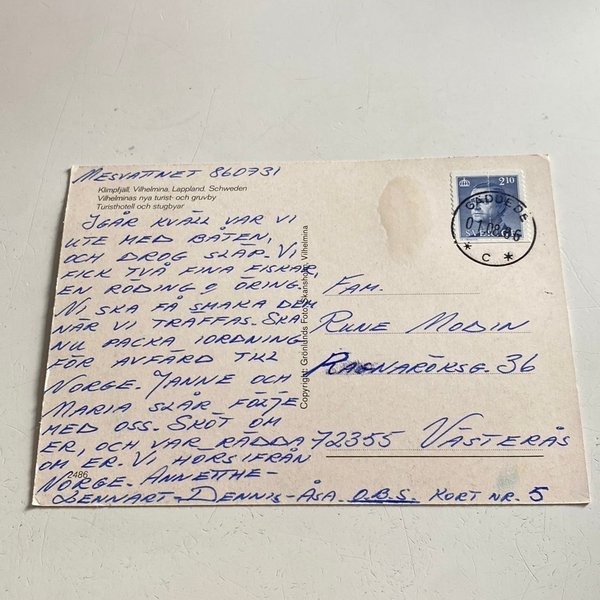 MESVATTNET 860731
Klimpfjäll, Vilhelmina, Lappland, Schweden
Vilhelminas nya turist- och gruvby
Turisthotell och stugbyar
IGÅR KVÄLL VAR VI
UTE MED BÅTEN,
OCH DROG SLÄP. VI
FICK TVÅ FINA FISKAR,
EN RÖDING O ÖRING.
NI SKA FÅ SMAKA DEM
NÄR VI TRÄFFAS. SKA
NU PACKA IORDNING
FÖR AVFÄRD TILL
NORGE. JANNE OCH
MARIA SLÅR FÖLJE
MED OSS. SKÖT OM
ER, OCH VAR RÄDDA
OM ER. VI HÖRS IFRÅN
NORGE. ANNETTHE-
LENNART-DENNIS-ÅSA. O.B.S. KORT NR. 5
2486
Copyright: Grönlunds Foto, Skansholm, Vilhelmina
2 10
GÄDDEDE
C
FAM.
RUNE MODIN
RAGNARÖKSG. 36
72355 VÄSTERÅS